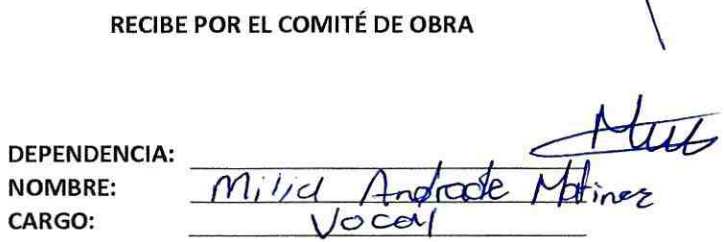 RECIBE POR EL COMITÉ DE OBRA
DEPENDENCIA:
NOMBRE: Milid Andrade Matinez
CARGO: Vocal